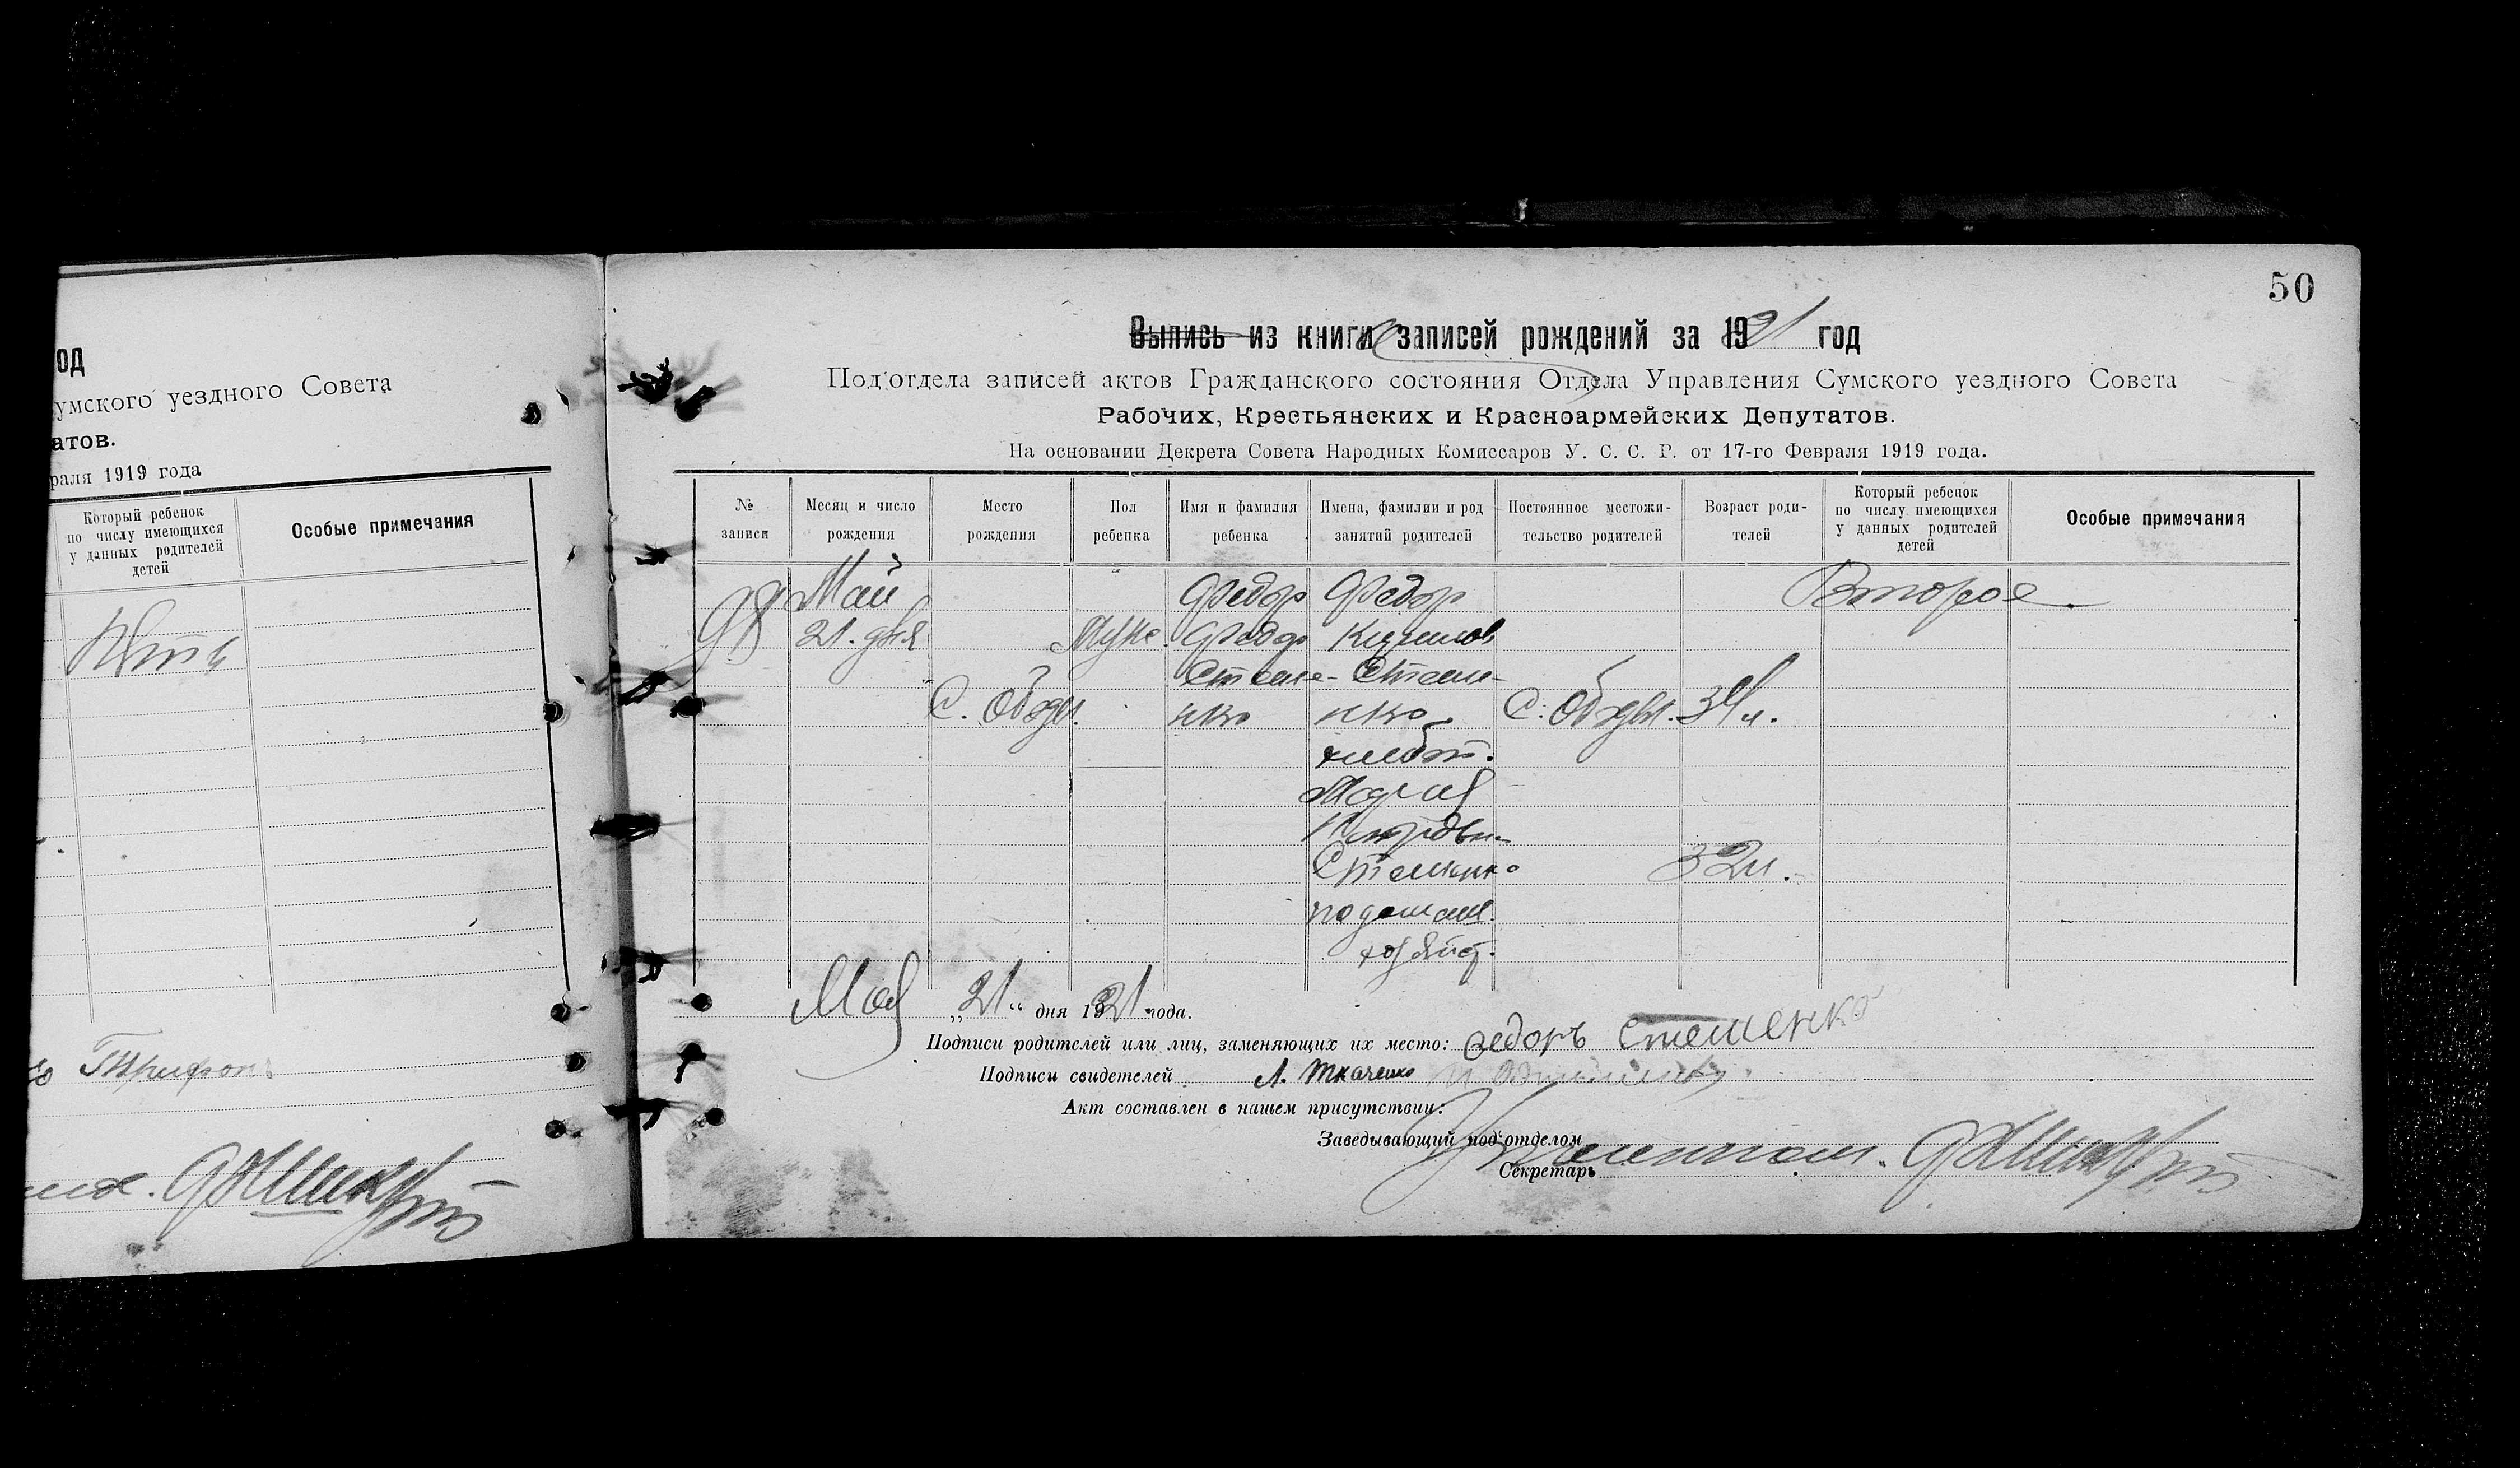 од
умского уездного Совета
атов.
раля 1919 года
Который ребенок
по числу имеющихся
у данных родителей
детей
Особые примечания
50
Выпись из книги записей рождений за 1921 год
Под'отдела записей актов Гражданского состояния Отдела Управления Сумского уездного Совета
Рабочих, Крестьянских и Красноармейских Депутатов.
На основании Декрета Совета Народных Комиссаров У. С. С. Р. от 17-го Февраля 1919 года.
№ записи
Месяц и число рождения
Место рождения
Пол ребенка
Имя и фамилия ребенка
Имена, фамилии и род занятий родителей
Постоянное местожительство родителей
Возраст родителей
Который ребенок по числу имеющихся у данных родителей детей
Особые примечания
98
Май
21. дня
С. Ободы.
Муж.
Федор
Федор
Стеше-
нко
Федор
Стеше-
нко
хлебоп.
Мария
Стешенко
по домаш.
хозяйст.
С. Ободы.
34 л.
32 л.
Второе
Мая „21“ дня 1921 года.
Подписи родителей или лиц, заменяющих их место: Федоръ Стешенко
Подписи свидетелей А. Ткаченко
Акт составлен в нашем присутствии:
Заведывающий под'отделом
Секретарь